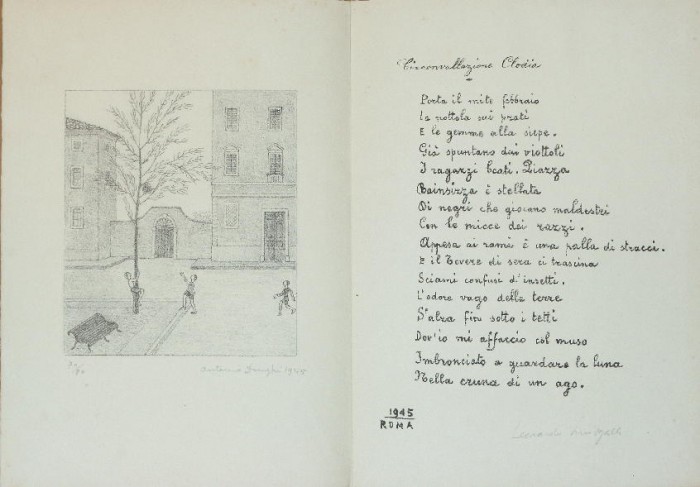 Circonvallazione Clodia
Porta il mite febbraio
la nottola sui prati
E le gemme alla siepe.
Già spuntano dai viottoli
I ragazzi beati. Piazza
Bainsizza è stellata
Di negri che giocano maldestri
Con le micce dei razzi.
Appesa ai rami è una palla di stracci.
E il Tevere di sera ci trascina
Sciami confusi d'insetti.
L'odore vago delle terre
S'alza fin sotto i tetti
Dov'io mi affaccio col muso
Imbronciato a guardare la luna
Nella cruna di un ago.
1945
ROMA
Antonio Donghi 1945
Leonardo Sinisgalli